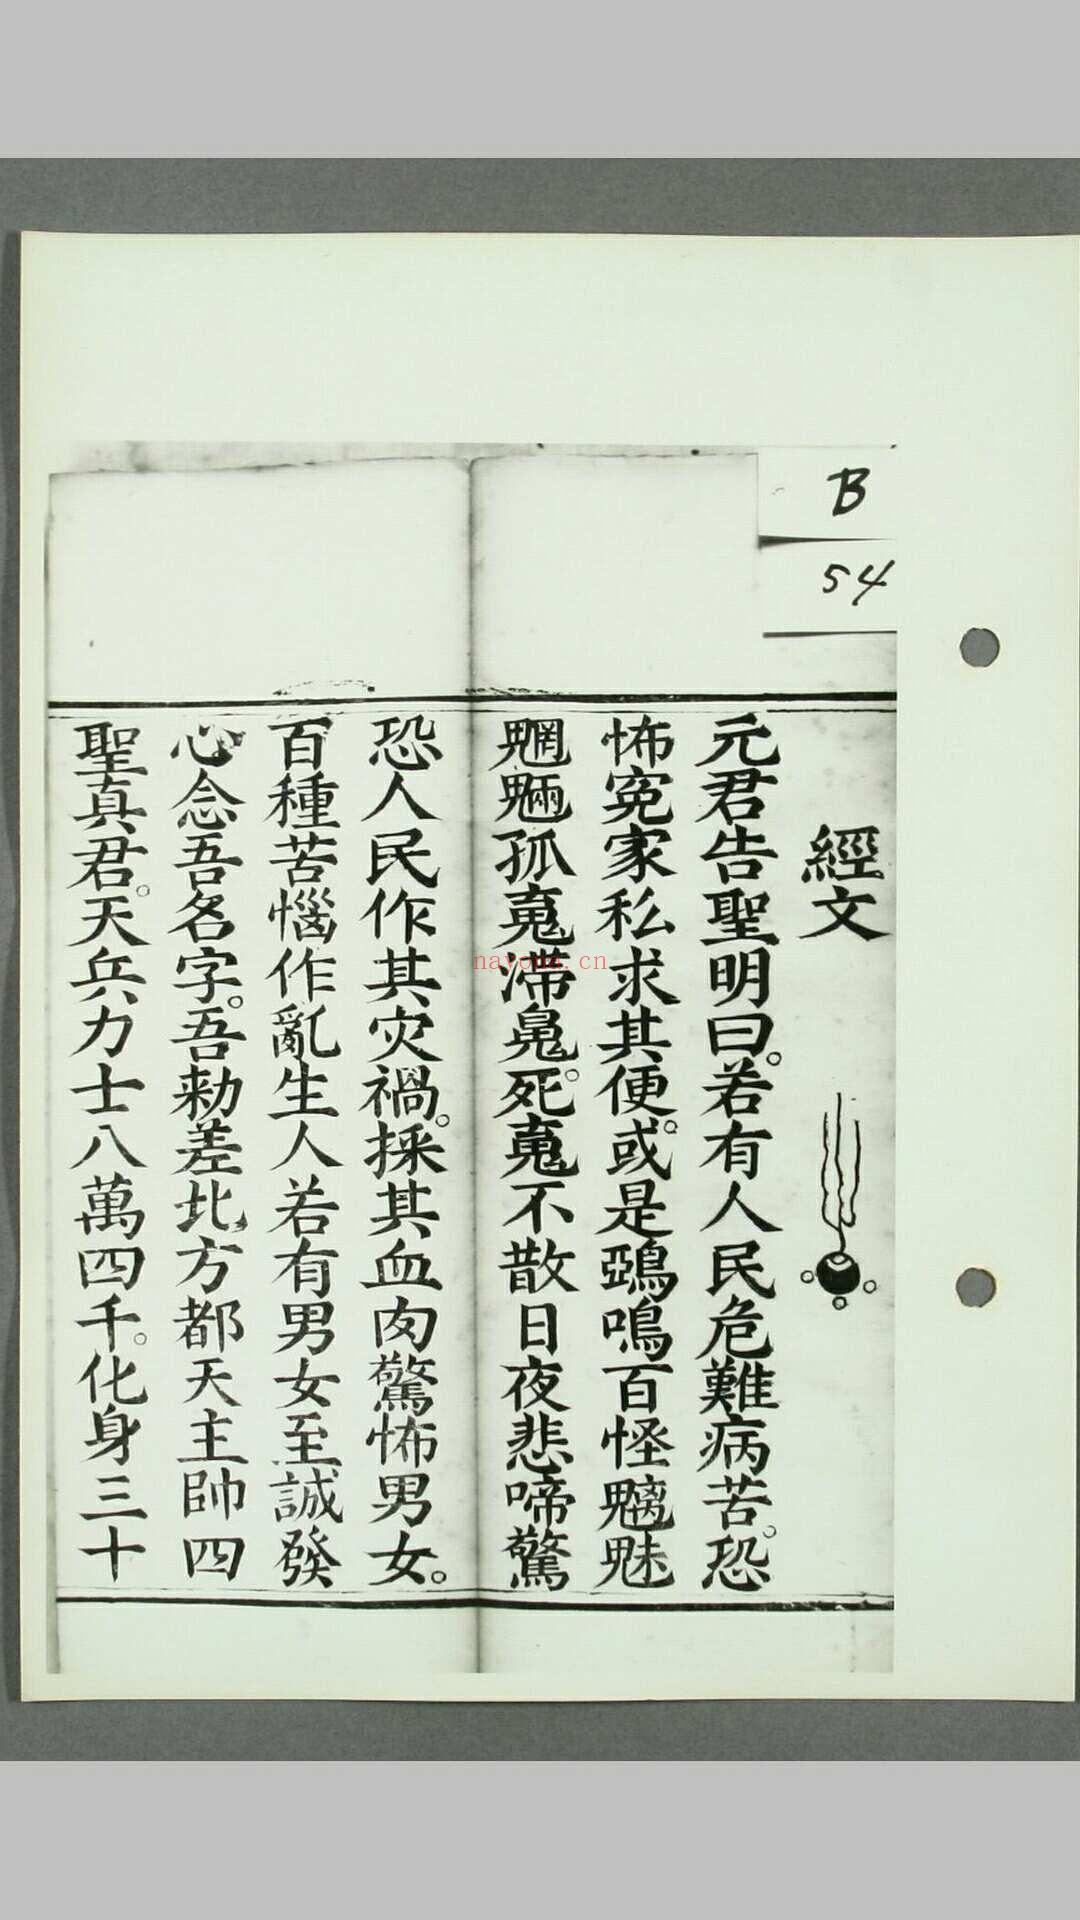 B
54
經文
元君告聖明曰。若有人民危難病苦。恐
怖寃家私求其便。或是鵶鳴百怪魑魅
魍魎孤䰟滯鬼。死䰟不散日夜悲啼驚
恐人民作其灾禍。採其血肉驚怖男女。
百種苦惱作亂生人若有男女至誠發
心念吾名字。吾勑差北方都天主帥四
聖真君。天兵力士八萬四千。化身三十
nayona.cn